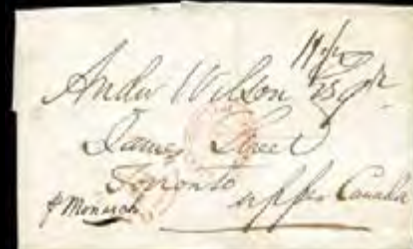 Andw Wilson Esqr
James Street
Toronto
upper Canada
p Monarch